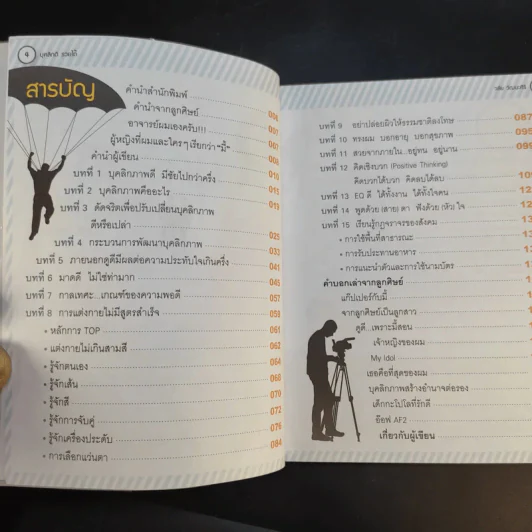 4 บุคลิกดี รวยได้
สารบัญ
คำนำสำนักพิมพ์
คำนำจากลูกศิษย์ 006
อาจารย์ผมเองครับ!!! 007
ผู้หญิงที่ผมและใครๆ เรียกว่า "มี้" 007
คำนำผู้เขียน 008
บทที่ 1 บุคลิกภาพดี มีชัยไปกว่าครึ่ง
บทที่ 2 บุคลิกภาพคืออะไร
บทที่ 3 ดัดจริตเพื่อปรับเปลี่ยนบุคลิกภาพ
ดีหรือเปล่า 025
บทที่ 4 กระบวนการพัฒนาบุคลิกภาพ 033
บทที่ 5 ภายนอกดูดีมีผลต่อความประทับใจเกินครึ่ง 041
บทที่ 6 มาดดี ไม่ใช่ท่ามาก 045
บทที่ 7 กาลเทศะ...เกณฑ์ของความพอดี 057
บทที่ 8 การแต่งกายไม่มีสูตรสำเร็จ 059
• หลักการ TOP 061
• แต่งกายไม่เกินสามสี 062
• รู้จักตนเอง 064
• รู้จักเส้น 068
• รู้จักสี 070
• รู้จักการจับคู่ 072
• รู้จักเครื่องประดับ 076
• การเลือกแว่นตา 084
บทที่ 9 อย่าปล่อยผิวให้ธรรมชาติลงโทษ 087
บทที่ 10 ทรงผม บอกอายุ บอกสุขภาพ 095
บทที่ 11 สวยจากภายใน...อยู่ทน อยู่นาน 099
บทที่ 12 คิดเชิงบวก (Positive Thinking)
คิดบวกได้บวก คิดลบได้ลบ
บทที่ 13 EQ ดี ได้ทั้งงาน ได้ทั้งใจคน
บทที่ 14 พูดด้วย (สาย) ตา ฟังด้วย (หัว) ใจ
บทที่ 15 เรียนรู้กฎจราจรของสังคม
• การใช้พื้นที่สาธารณะ
• การรับประทานอาหาร
• การแนะนำตัวและการใช้นามบัตร
คำบอกเล่าจากลูกศิษย์
แก๊ปเปอร์กับมี้
จากลูกศิษย์เป็นลูกสาว
ดูดี...เพราะมี้สอน
เจ้าหญิงของผม
My Idol
เธอคือที่สุดของผม
บุคลิกภาพสร้างอำนาจต่อรอง
เด็กกะโปโลที่รักดี
อ๊อฟ AF2
เกี่ยวกับผู้เขียน